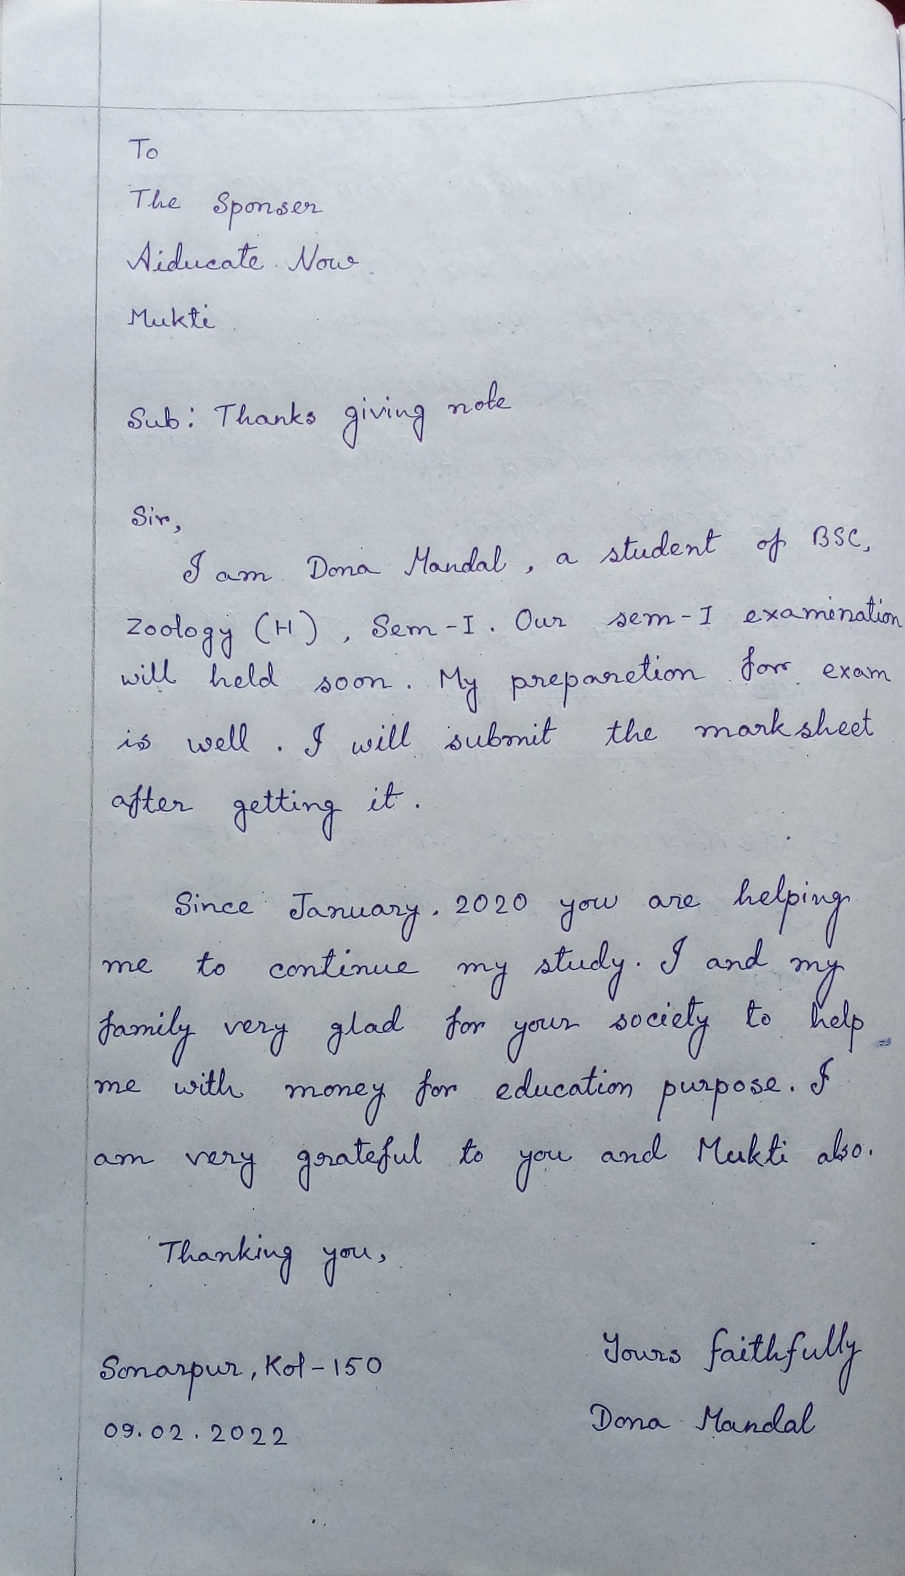 To
The Sponser
Aiducate Now
Mukti
Sub: Thanks giving note
Sir,
I am Dona Mandal, a student of BSC,
Zoology (H), Sem-I. Our sem-I examination
will held soon. My preparetion for exam
is well. I will submit the mark sheet
after getting it.
Since January, 2020 you are helping
me to continue my study. I and my
family very glad for your society to help
me with money for education purpose. I
am very grateful to you and Mukti also.
Thanking you,
Yours faithfully
Sonarpur, Kol-150
Dona Mandal
09.02.2022